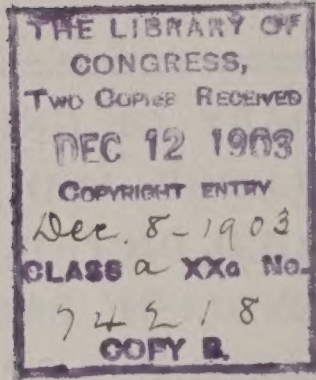 THE LIBRARY OF
CONGRESS,
TWO COPIES RECEIVED
DEC 12 1903
COPYRIGHT ENTRY
Dec. 8-1903
CLASS a XXc No.
74218
COPY B.